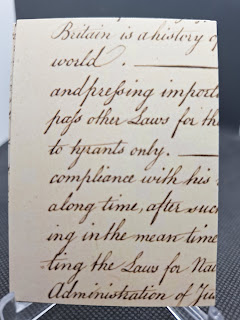 Britain is a history of
world. —
and pressing import
pass other Laws for th
to tyrants only. —
compliance with his
along time, after suc
ing in the mean time
ting the Laws for Na
Administration of Ju